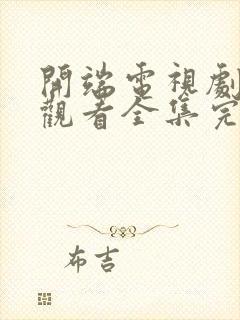 開端電視劇
觀看全集完
布吉